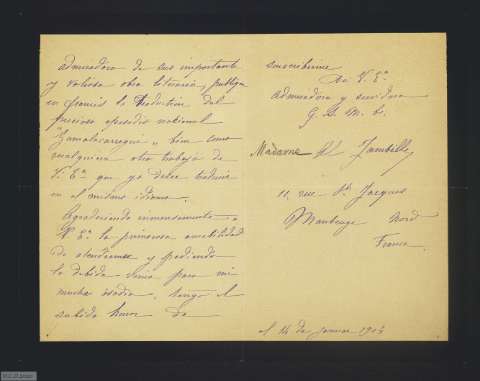 admiradora de sus importante
y valiosa obra literaria, publique
en francés la traduction del
precioso episodio national
"Zumalacarregui", bien como
cualquiera otro trabajo de
V. Eª que yo desee traducir
en el mismo idioma.
Agradeciendo inmensamente a
V. Eª la primorosa amabilidad
de atenderme y pediendo
la debida venia para mi
mucha osadia, tengo el
subido honor de
suscribirme
De V. Eª
admiradora y servidora
Q. B. M. b.
Madame
rue St Jacques
Maubeuge Nord
France
el 14 de 1903